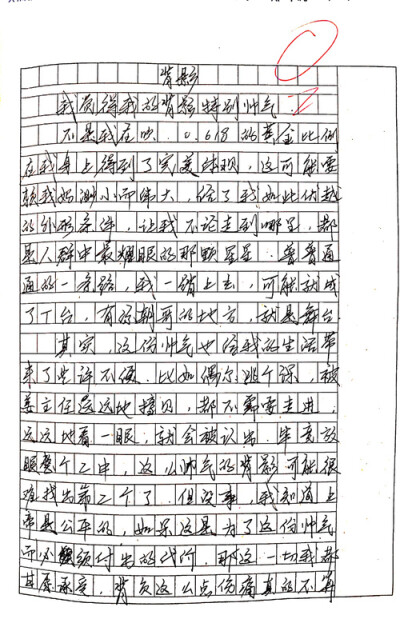 背影
我觉得我的背影特别帅气。
不是我在吹，0.618的黄金比例
在我身上得到了完美体现，这可能要
赖我妈渺小而伟大，给了我如此优越
的外形条件，让我不论走到哪里，都
是人群中最耀眼的那颗星星。普普通
通的一条路，我一踏上去，可能就成
了T台，有我朝 的地方，就是舞台
其实，这份帅气也给我的生活带
来了些许不便。比如偶尔逃个课，被
姜主任远远地撞见，都不需要走进，
远远地看一眼，就会被认出。毕竟放
眼整个二中，这么帅气的背影，可能很
难找出第二个了。但没事，我知道上
帝是公平的，如果这是为了这份帅气
而必须付出的代价，那这一切我都
甘愿承受，背负这么点伤痛真的不算